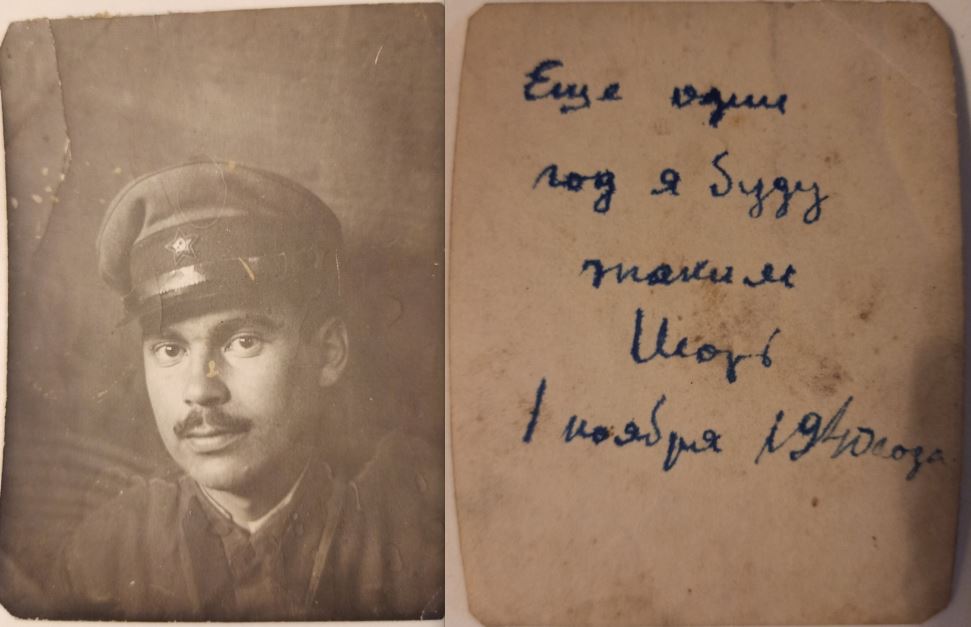 Еще один
год я буду
таким
Игорь
1 ноября 1940 года